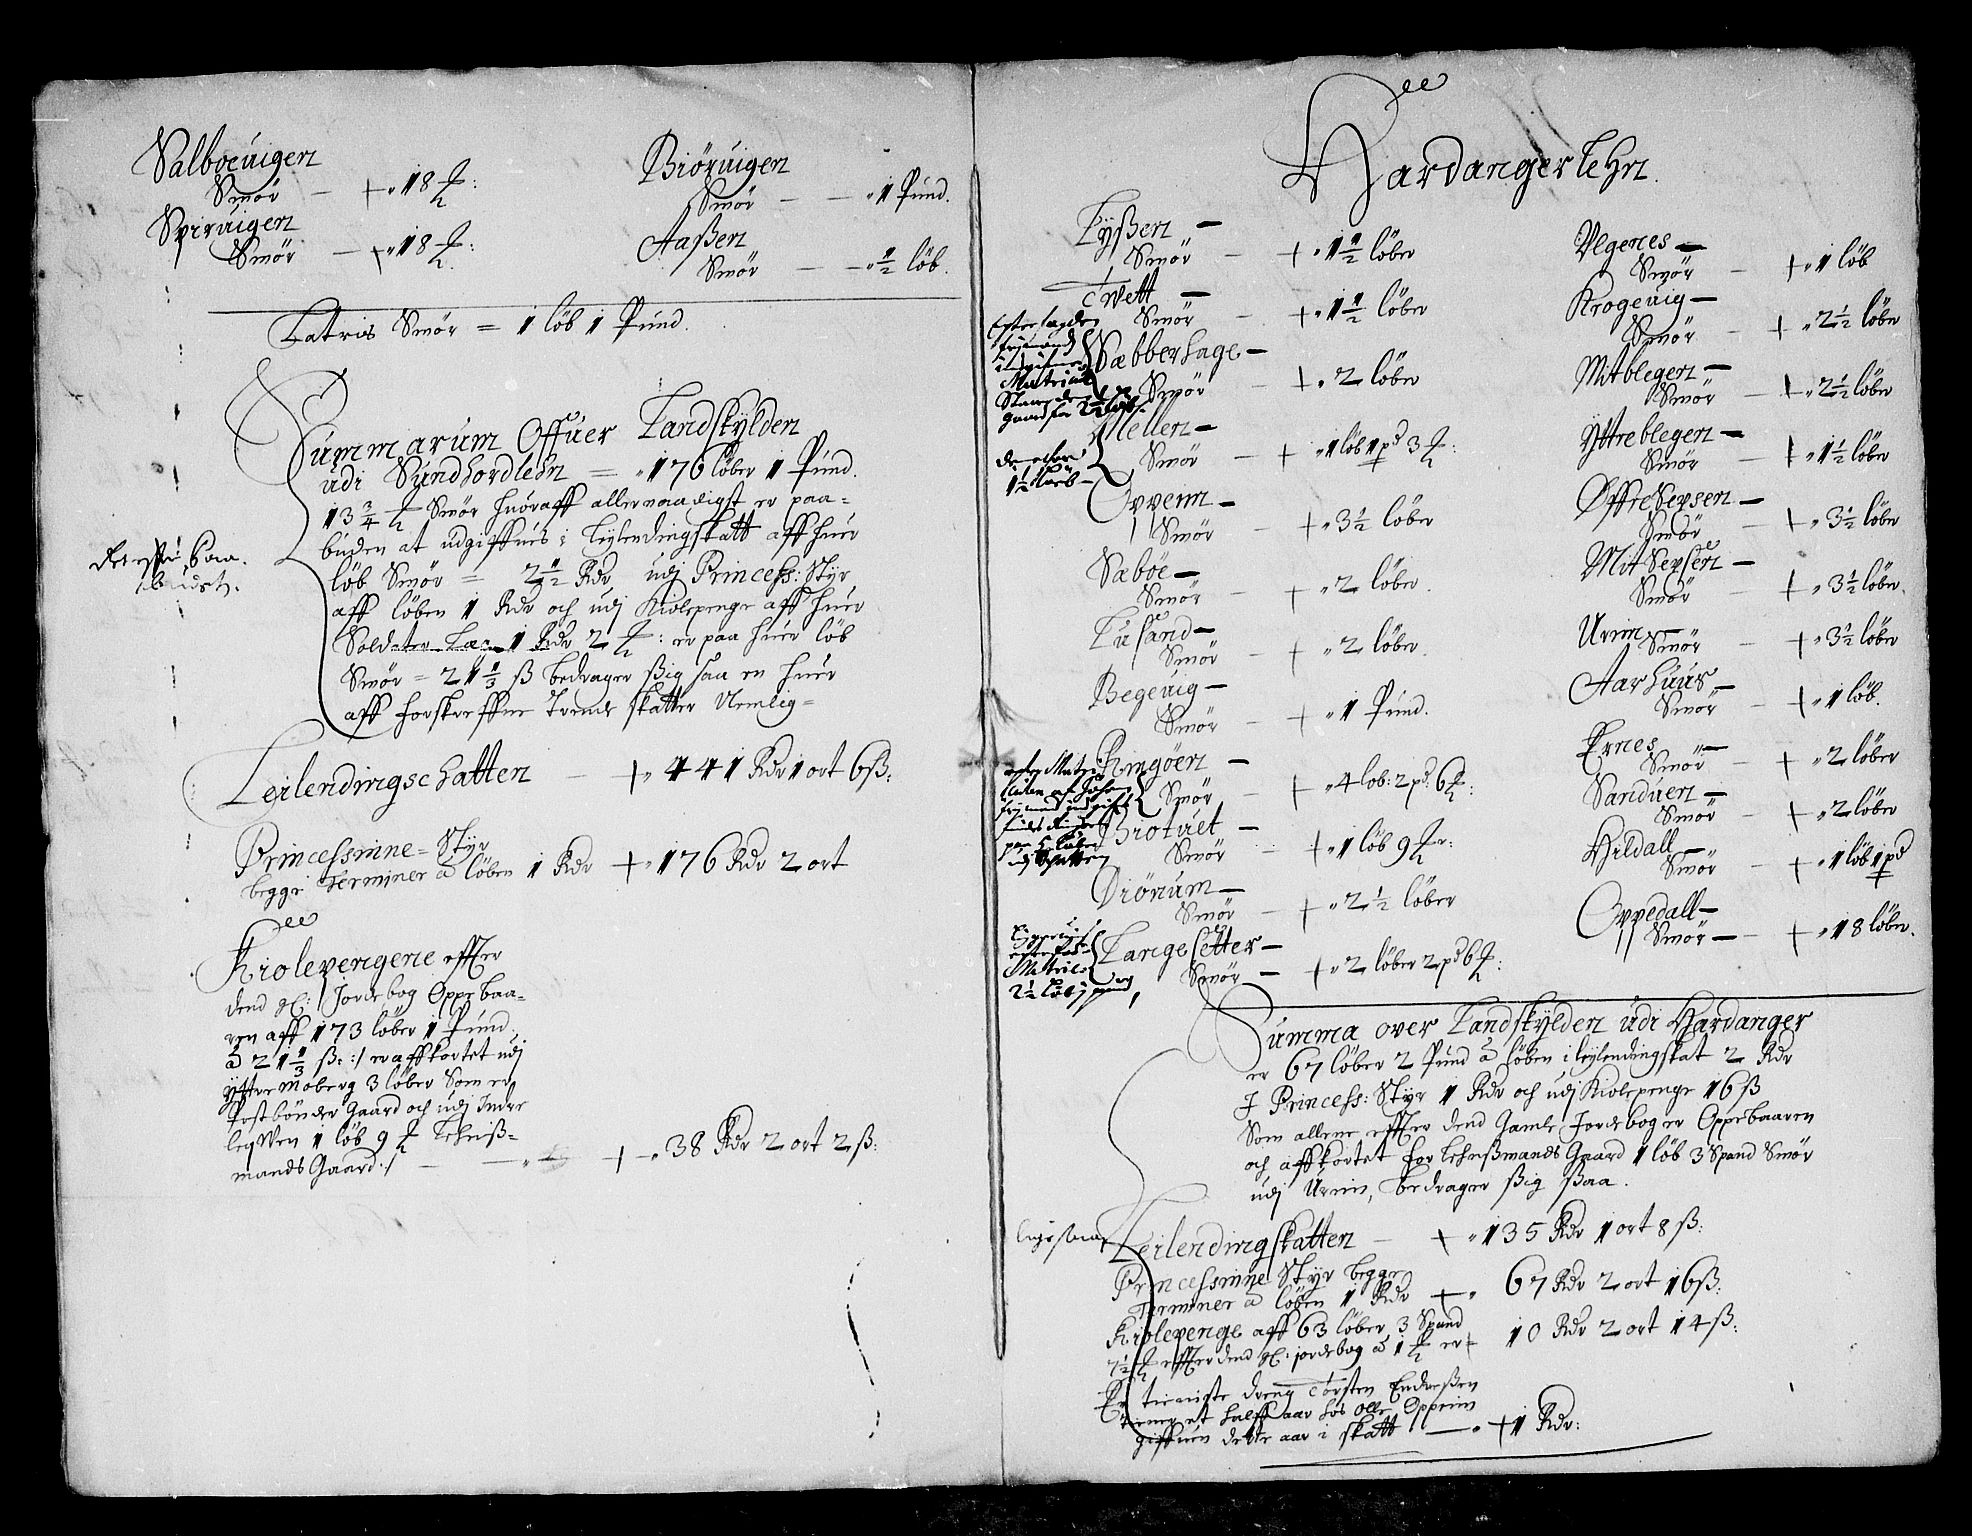 Valboeuigen
Smör — + „ 18 ℔:
Spiruigen
Smör — + „ 18 ℔:
Biöruigen
Smör — — „ 1 Pund.
Aaßen
Smör — — „ ½ löb.
Latris Smör = 1 löb 1 Pund.
Summarum Offuer Landskylden
udi Sundhordlehn = „ 176 löber 1 Pund.
13 ¾ ℔ Smör huoraff allernaadigst er paa-
buden at udgiffuis i Leylendingskatt aff huer
löb Smör = 2 ½ Rdr udj Princess: Styr
aff löben 1 Rdr och udj Kiolepenge aff huer
Soldater Læg 1 Rdr 2 ℔: er paa huer löb
Smör = 21 ⅓ ß bedrager ßig saa en huer
aff forskreffne Trende skatter Nemlig=
Leilendingschatten — + „ 441 Rdr 1 ort 6 ß:
Princessinne= Styr
begge Terminer a löben 1 Rdr + „ 176 Rdr 2 ort
Kiolepengene effter
dend gl: Jordebog Oppebaa-
ren aff 173 löber 1 Pund
a 21 ⅓ ß: :/ er affkortet udj
Yttre Moberg 3 löber Som er
Postbönder Gaard och udj Indre
1 löb 9 ℔ Lehnß-
mands Gaard :/ — — + — „ 38 Rdr 2 ort 2 ß:
Hardangerlehn
Lyßen —
Smör — + „ 1 ½ löber
Twett —
Smör — + „ 1 ½ löber
Sæbberhage —
Smör — + „ 2 löber
Mellen —
Smör — + „ 1 löb 1 pd 3 ℔:
1 ½ löeb —
Oppemi —
Smör — + „ 3 ½ löber
Sæböe —
Smör — + „ 2 löber.
Lusand —
Smör — + „ 2 löber.
Begeuig —
Smör — + „ 1 Pund.
Ringöen —
Smör — + „ 4 löb: 2 pd: 6 ℔:
Brotuet —
Smör — + „ 1 löb 9 ℔:
Diönum —
Smör — + „ 2 ½ löber
Langesetter —
Smör — + „ 2 löber 2 pd 6 ℔:
Vlgenes —
Smör — + „ 1 löb
Krogeuig —
Smör — + „ 2 ½ löber
Mitblegen —
Smör — + „ 2 ½ löber
Yttreblegen —
Smör — + „ 1 ½ löber
Öffre Sepsen —
Smör — + „ 3 ½ löber
Mit Sepsen —
Smör — + „ 3 ½ löber.
Urim —
Smör — + „ 3 ½ löber
Aarhuus —
Smör — + „ 1 löb.
Ernes —
Smör — + „ 2 löber
Sanduen —
Smör — + „ 2 löber
Hildall —
Smör — + „ 1 löb 1 pd
Oppedall —
Smör — — + „ 18 löber.
Summa over Landskylden udi Hardanger
er 67 löber 2 Pund a löben i leylendingskat 2 Rdr
I Princess: Styr 1 Rdr och udj Kiolepenge 16 ß
Som allene effter dend Gamle Jordebog er Oppebaaren
och affkortet for Lehnßmands Gaard 1 löb 3 Spand Smör
udj Urim, bedrager ßig ßaa.
Leilendingskatten — + „ 135 Rdr 1 ort 8 ß:
Princessinne Styr begge
Terminer a löben 1 Rdr + „ 67 Rdr 2 ort 16 ß:
Kiolepenge aff 63 löber 3 Spand
7 ½ ℔ effter dend gl: jordebog a 1 ℔ er = 10 Rdr 2 ort 14 ß:
En tieniste dreng Torsten Endreßen
tiener et halff aar hos Olle Oppeim
giffuen dette aar i skatt — „ + 1 Rdr: